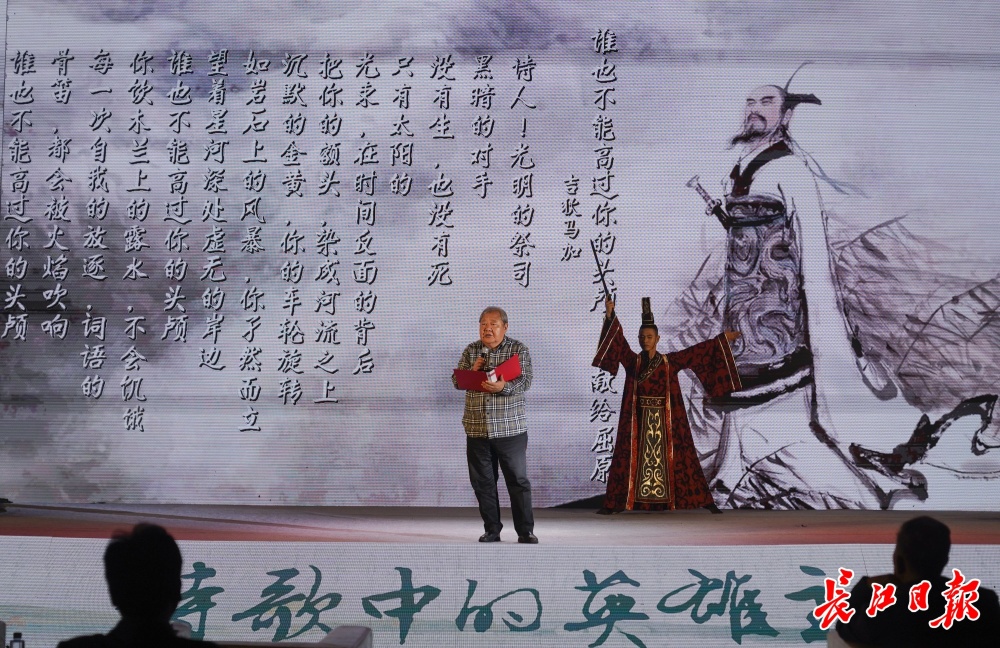 谁也不能高过你的头颅 献给屈原
吉狄马加
诗人！光明的祭司
黑暗的对手
没有生，也没有死
只有太阳的
光束，在时间反面的背后
把你的额头，染成河流之上
沉默的金黄，你的车轮旋转
如岩石上的风暴，你孑然而立
望着星河深处虚无的岸边
谁也不能高过你的头颅
你饮木兰上的露水，不会饥饿
每一次自我的放逐，词语的
骨笛，都会被火焰吹响
谁也不能高过你的头颅
诗歌中的英雄主
长江日报